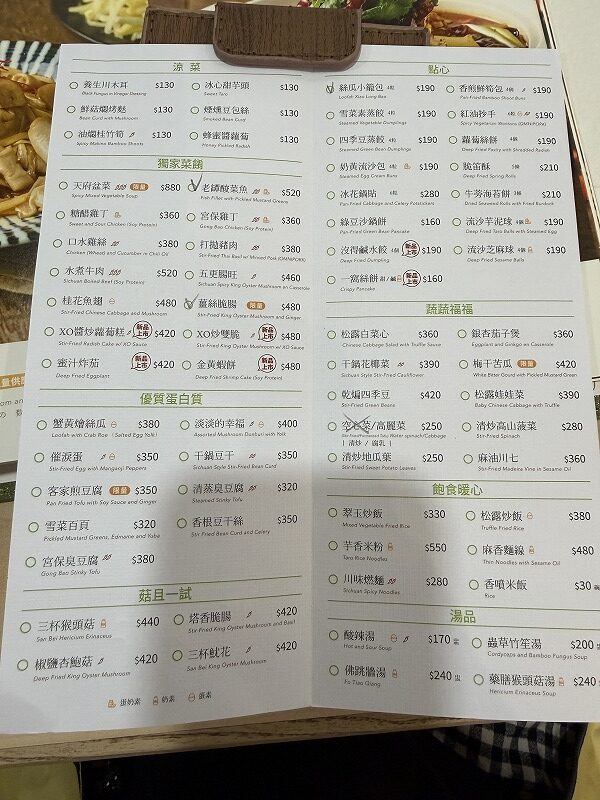 涼 菜
養生川木耳 $130
Black Fungus in Vinegar Dressing
冰心甜芋頭 $130
Sweet Taro
鮮菇燜烤麩 $130
Bean Curd with Mushroom
煙燻豆包絲 $130
Smoked Bean Curd
油燜桂竹筍 $130
Spicy Makino Bamboo Shoots
蜂蜜醬蘿蔔 $130
Honey Pickled Radish
獨家菜餚
天府盆菜 限量 $880
Spicy Mixed Vegetable Soup
老罈酸菜魚 $520
Fish Fillet with Pickled Mustard Greens
糖醋雞丁 $360
Sweet and Sour Chicken (Soy Protein)
宮保雞丁 $360
Gong Bao Chicken (Soy Protein)
口水雞絲 $380
Chicken (Wheat) and Cucumber in Chili Oil
打拋豬肉 $380
Stir-Fried Thai Basil w/ Minced Pork (OMNIPORK)
水煮牛肉 $520
Sichuan Boiled Beef (Soy Protein)
五更腸旺 $460
Sichuan Spicy King Oyster Mushroom en Casserole
桂花魚翅 $480
Stir-Fried Chinese Cabbage and Mushroom
薑絲脆腸 限量 $480
Stir-Fried King Oyster Mushroom and Ginger
XO醬炒蘿蔔糕 新品上市 $420
Stir-Fried Radish Cake w/ XO Sauce
XO炒雙脆 新品上市 $480
Stir-Fried King Oyster Mushroom w/ XO Sauce
蜜汁炸茄 新品上市 $420
Deep Fried Eggplant
金黃蝦餅 新品上市 $480
Deep Fried Shrimp Cake (Soy Protein)
優質蛋白質
蟹黃燴絲瓜 $380
Loofah with Crab Roe (Salted Egg Yolk)
淡淡的幸福 $400
Assorted Mushroom Donburi with Yolk
催淚蛋 $350
Stir-Fried Egg with Manganji Peppers
干鍋豆干 $350
Sichuan Style Stir-Fried Bean Curd
客家煎豆腐 限量 $350
Pan Fried Tofu with Soy Sauce and Ginger
清蒸臭豆腐 $320
Steamed Stinky Tofu
雪菜百頁 $320
Pickled Mustard Greens, Edamame and Yuba
香根豆干絲 $350
Stir Fried Bean Curd and Celery
宮保臭豆腐 $380
Gong Bao Stinky Tofu
菇且一試
三杯猴頭菇 $440
San Bei Hericium Erinaceus
塔香脆腸 $420
Stir-Fried King Oyster Mushroom and Basil
椒鹽杏鮑菇 $420
Deep Fried King Oyster Mushroom
三杯魷花 $420
San Bei King Oyster Mushroom
蛋奶素 奶素 蛋素
點心
絲瓜小籠包 4粒 $190
Loofah Xiao Long Bao
香煎鮮筍包 4個 $190
Pan-Fried Bamboo Shoot Buns
雪菜素蒸餃 4粒 $190
Steamed Vegetable Dumplings
紅油抄手 4粒 $190
Spicy Vegetarian Wontons (OMNIPORK)
四季豆蒸餃 4粒 $190
Steamed Green Bean Dumplings
蘿蔔絲餅 4個 $190
Deep Fried Pastry with Shredded Radish
奶黃流沙包 4粒 $190
Steamed Egg Cream Buns
脆笛酥 5個 $210
Deep Fried Spring Rolls
冰花鍋貼 $280
Pan Fried Cabbage and Celery Potstickers
牛蒡海苔餅 3個 $210
Dried Seaweed Rolls with Fried Burdock
綠豆沙鍋餅 $160
Pan Fried Green Bean Pancake
流沙芋泥球 4個 $190
Deep Fried Taro Balls with Seamed Egg
沒得鹹水餃 4個 新品上市 $190
Deep Fried Dumpling
流沙芝麻球 4個 $190
Deep Fried Sesame Balls
一窩絲餅 甜/鹹 新品上市 $160
Crispy Pancake
蔬蔬福福
松露白菜心 $360
Chinese Cabbage Salad with Truffle Sauce
銀杏茄子煲 $360
Eggplant en Casserole
干鍋花椰菜 $390
Sichuan Style Stir-Fried Cauliflower
梅干苦瓜 限量 $420
White Bitter Gourd with Pickled Mustard Green
乾煸四季豆 $420
Stir-Fried Green Beans
松露娃娃菜 $390
Baby Chinese Cabbage with Truffle
空心菜/高麗菜 $250
Stir-Fried/Fermented Tofu Water spinach/Cabbage
| 清炒 / 腐乳 |
清炒高山菠菜 $280
Stir-Fried Spinach
清炒地瓜葉 $250
Stir-Fried Sweet Potato Leaves
麻油川七 $360
Stir-Fried Madeira Vine in Sesame Oil
飽食暖心
翠玉炒飯 $330
Mixed Vegetable Fried Rice
松露炒飯 $380
Truffle Fried Rice
芋香米粉 $550
Taro Rice Noodles
麻香麵線 $480
Thin Noodles with Sesame Oil
川味燃麵 $280
Sichuan Spicy Noodles
香噴米飯 $30
Rice
湯品
酸辣湯 $170 盅
Hot and Sour Soup
蟲草竹笙湯 $200
Cordyceps and Bamboo Fungus Soup
佛跳牆湯 $240 盅
Fo Tiao Qiang
藥膳猴頭菇湯 $240
Hericium Erinaceus Soup